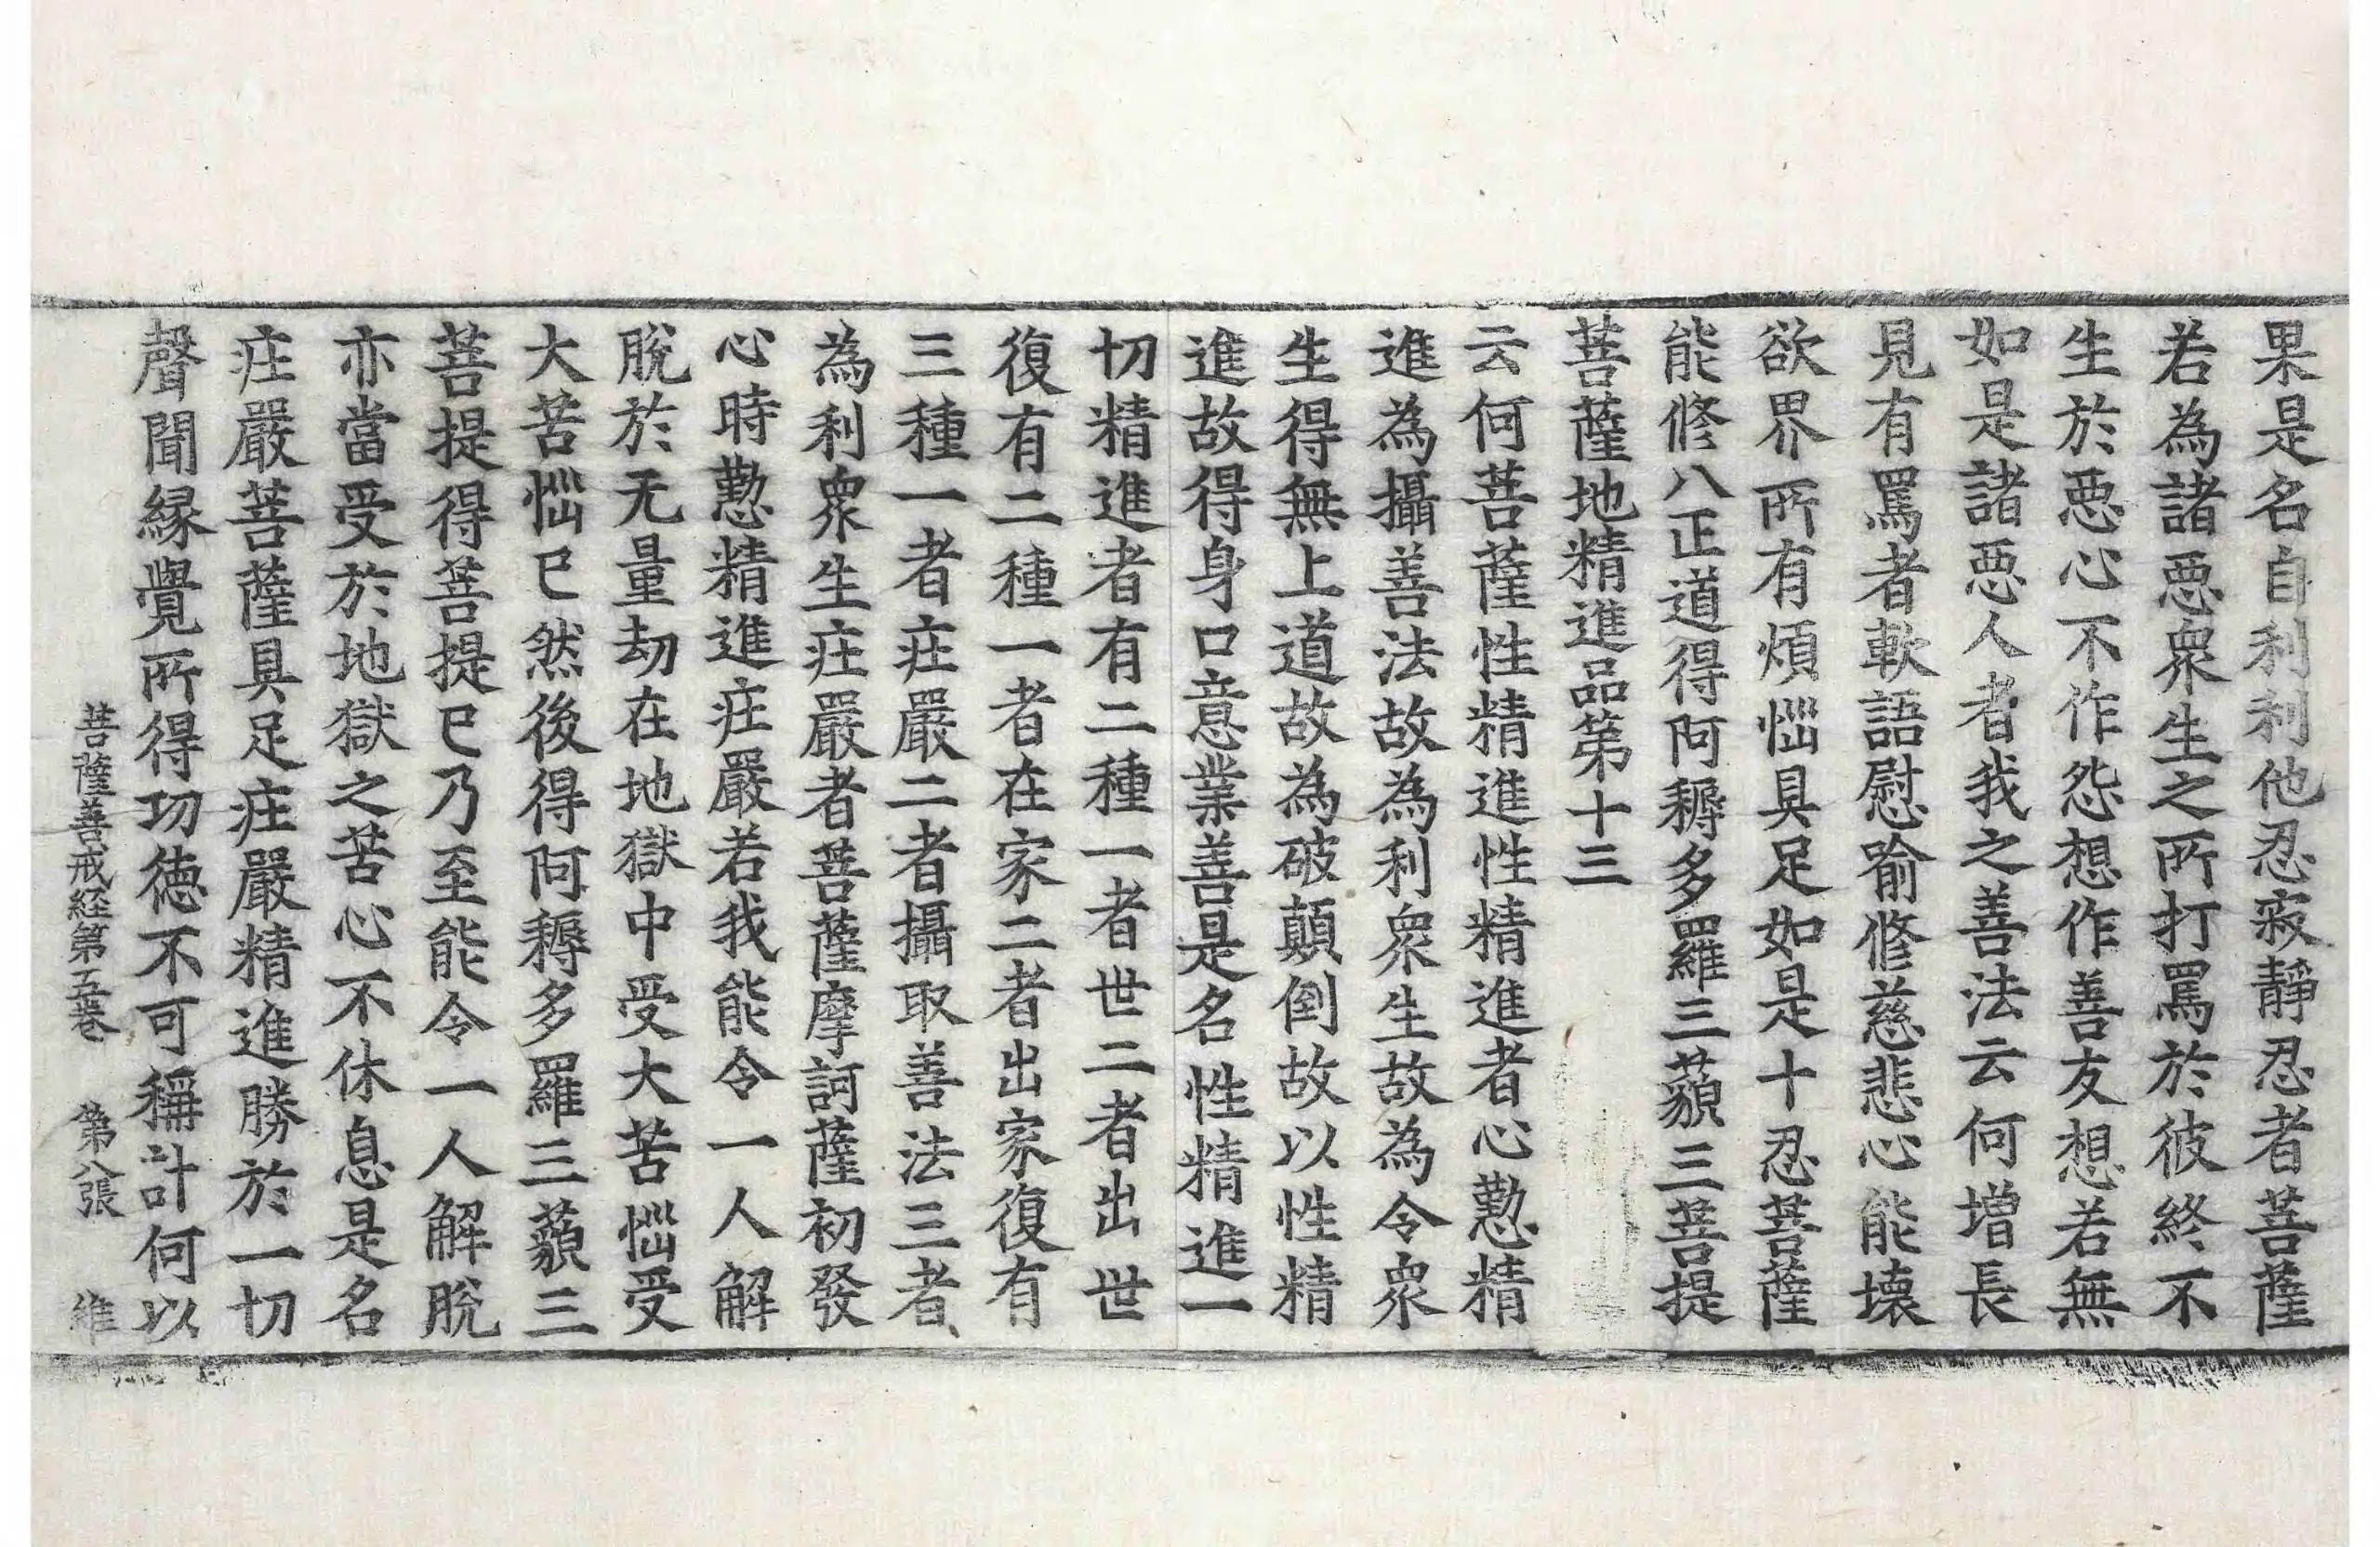 果是名自利利他忍寂靜忍者菩薩
若為諸惡衆生之所打罵於彼終不
生於惡心不作怨想作善友想若無
如是諸惡人者我之善法云何增長
見有罵者軟語慰喻修慈悲心能壞
欲界所有煩惱具足如是十忍菩薩
能修八正道得阿耨多羅三藐三菩提
菩薩地精進品第十三
云何菩薩性精進性精進者心懃精
進為攝善法故為利衆生故為令衆
生得無上道故為破顛倒故以性精
進故得身口意業善是名性精進一
切精進者有二種一者世二者出世
復有二種一者在家二者出家復有
三種一者庄嚴二者攝取善法三者
為利衆生庄嚴者菩薩摩訶薩初發
心時懃精進庄嚴若我能令一人解
脫於无量劫在地獄中受大苦惱受
大苦惱已然後得阿耨多羅三藐三
菩提得菩提已乃至能令一人解脫
亦當受於地獄之苦心不休息是名
庄嚴菩薩具足庄嚴精進勝於一切
聲聞緣覺所得功德不可稱計何以
菩薩善戒経第五卷 第八張 維